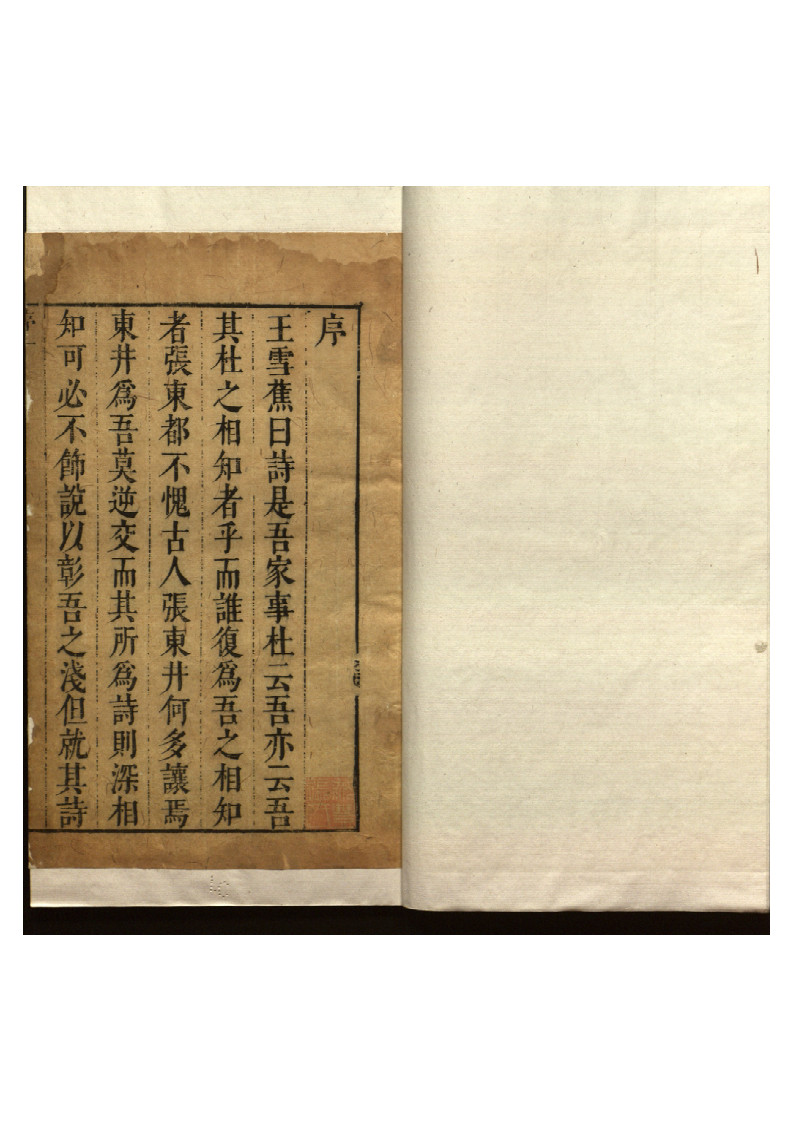 序
王雪蕉曰詩是吾家事杜云吾亦云吾
其杜之相知者乎而誰復爲吾之相知
者張東都不愧古人張東井何多讓焉
東井爲吾莫逆交而其所爲詩則深相
知可必不飾說以彰吾之淺但就其詩
序一